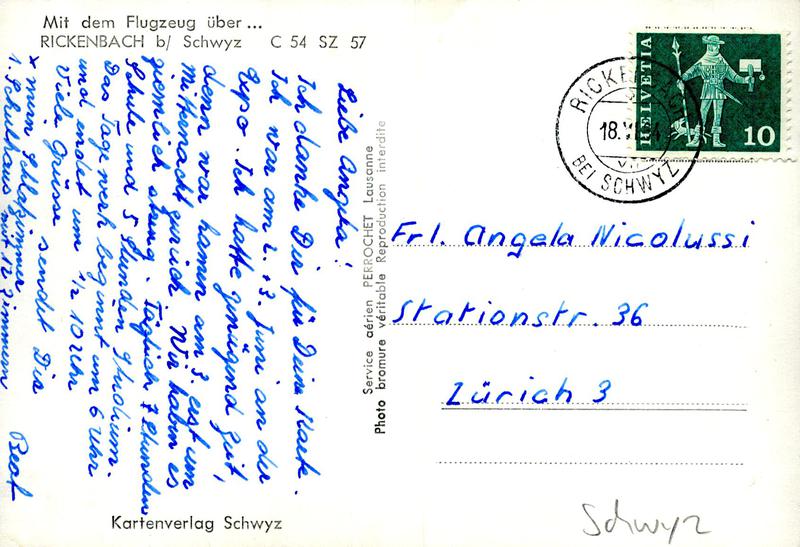 Mit dem Flugzeug über...
RICKENBACH b/ Schwyz C 54 SZ 57
Liebe Angela!
Ich danke Dir für Deine Karte.
Ich war am 2. + 3. Juni an der
Expo. Ich hatte genügend Zeit,
denn wir kamen am 3. erst um
Mitternacht zurück. Wir haben es
ziemlich streng. Täglich 7 Stunden
Schule und 5 Stunden Studium.
Das Tagewerk beginnt um 6 Uhr
und endet um ½ 10 Uhr
Viele Grüsse sendet Dir
Beat
x mein Schlafzimmer
1. Schulhaus mit 12 Zimmern
Kartenverlag Schwyz
Service aérien PERROCHET Lausanne
Photo bromure véritable Reproduction interdite
HELVETIA
10
18.
BEI SCHWYZ
Frl. Angela Nicolussi
Stationstr. 36
Zürich 3
Schwyz